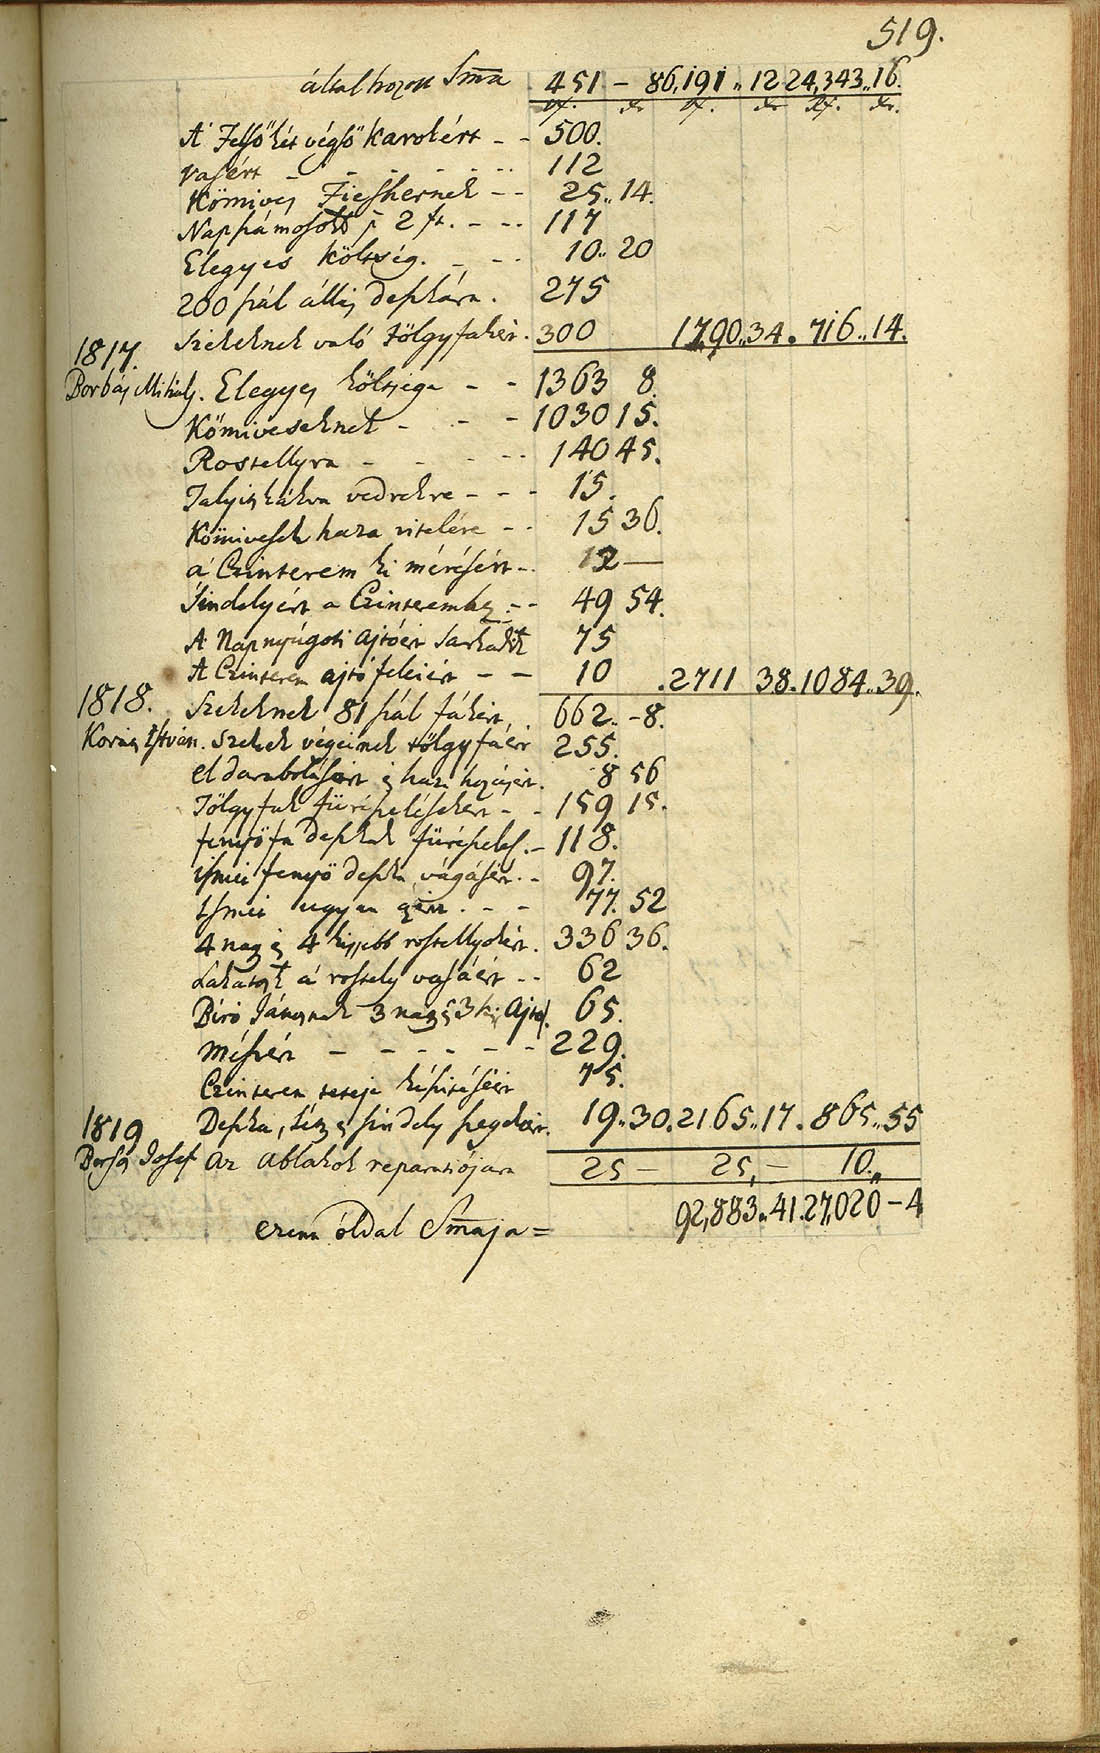 519.
által hozott Sma 451 – 86,191 „ 12 24,343 „ 16.
xf. dr xf. dr Rf. dr.
A' Felső két végső Karokért – – 500.
Vasért – – – – – 112
Kőmives Fieshernek – – 25 „ 14.
Napszámosok 2 ft. – – 117
Elegyes költség. – – 10 „ 20
200 szál állás deszkára. 275
Székeknek való tölgyfakért. 300 1790 „ 34. 716 „ 14.
1817.
Borbás Mihály. Elegyes költsége – – 1363 8.
Kőmiveseknek – – – 1030 15.
Rostellyra – – – – 140 45.
Talyigákra vedrekre – – – 15.
Kőmivesek haza vitelére – – 15 36.
a' Czinterem ki méréséért – 12 —
Sindelyért a Czinteremhez – – 49 54.
A Napnyúgoti Ajtóért 75
A Czinterem ajtó feleiért – – 10 . 2711 38. 1084 „ 39.
1818. Székeknek 81 szál fákért, . 662. – 8.
István. Székek végeinek tölgyfáért 255.
el darabolásáért és haza hozásért. 8 56
Tölgyfák fűrészelésekért – – 159 15.
fenyőfa deszkák fűrészelés. – 118.
ismét fenyő deszka vágásért. – 97.
Ismét ugyan azért. – – 77. 52
4 nagy és 4 kissebb rostellyokért. 336 36.
Lakatosk a' rostely vasáért – – 62
Biró Jánosnak 3 nagy s 3 kis Ajtó. 65.
Mészért – – – – – – 229.
Czinterem teteje készitéséért 75.
1819 Deszka, léts s sindely szegekért. 19 „ 30. 2165 „ 17. 865 „ 55
Josef Az Ablakok reparatiójára 25 – 25, – 10. „
ezenn óldal Smája = 92,883 „ 41. 27,020 – 4